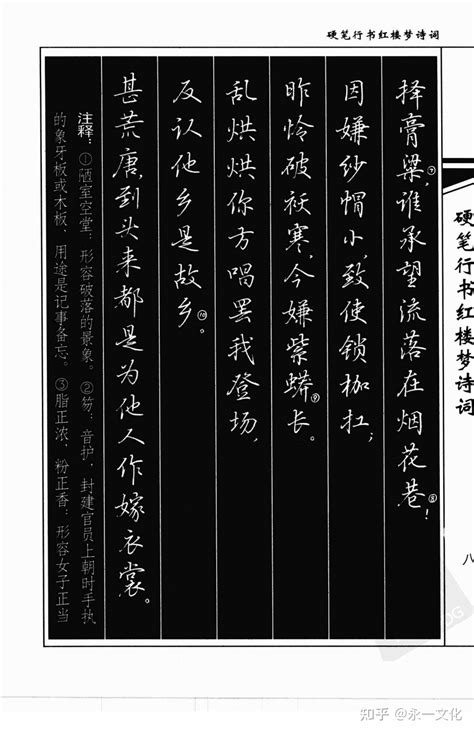 硬笔行书红楼梦诗词
择膏粱⑦,谁承望流落在烟花巷⑧!
因嫌纱帽小,致使锁枷扛;
昨怜破袄寒,今嫌紫蟒⑨长。
乱烘烘你方唱罢我登场,
反认他乡是故乡⑩。
甚荒唐,到头来都是为他人作嫁衣裳。
注释:①陋室空堂:形容破落的景象。②笏:音护,封建官员上朝时手执
的象牙板或木板,用途是记事备忘。③脂正浓、粉正香:形容女子正当
硬笔行书红楼梦诗词
八
知乎 @永一文化